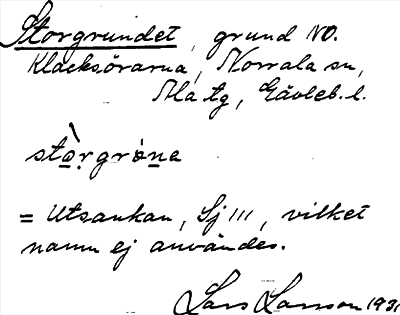 Storgrundet, grund NO.
Klacksörarna, Norrala sn,
Ala tg, Gävleb. l.
stòrgróne
= Utsankan, Sj III, vilket
namn ej användes.
Lars Larsson 1931